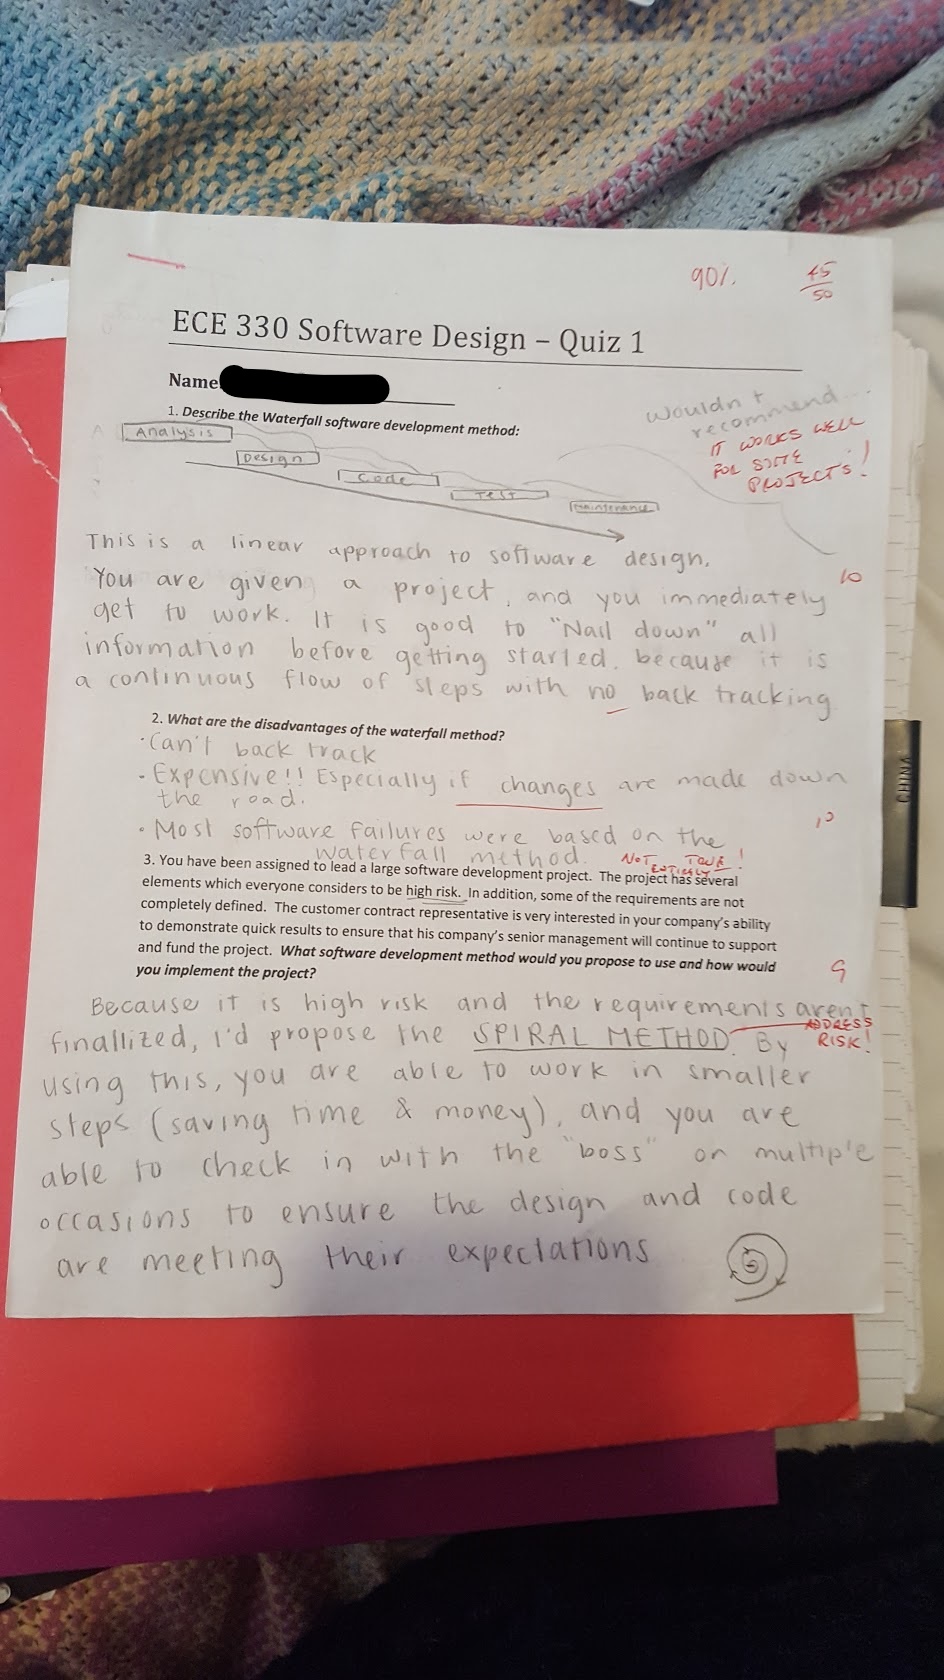 90%. 45
50
ECE 330 Software Design – Quiz 1
Name
1. Describe the Waterfall software development method:
Wouldn't
recommend...
IT WORKS WELL
FOR SOME
PROJECTS!
Analysis
Design
Code
Test
Maintenance
This is a linear approach to software design.
10
You are given a project, and you immediately
get to work. It is good to "Nail down" all
information before getting started, because it is
a continuous flow of steps with no back tracking
2. What are the disadvantages of the waterfall method?
· Can't back track
- Expensive!! Especially if changes are made down
the road.
10
· Most software failures were based on the
waterfall method.
NOT ENTIRELY TRUE!
3. You have been assigned to lead a large software development project. The project has several
elements which everyone considers to be high risk. In addition, some of the requirements are not
completely defined. The customer contract representative is very interested in your company's ability
to demonstrate quick results to ensure that his company's senior management will continue to support
and fund the project. What software development method would you propose to use and how would
you implement the project?
9
Because it is high risk and the requirements aren't
finallized, I'd propose the SPIRAL METHOD. By
ADDRESS
RISK!
using this, you are able to work in smaller
steps (saving time & money), and you are
able to check in with the "boss" on multiple
occasions to ensure the design and code
are meeting their expectations
CHINA